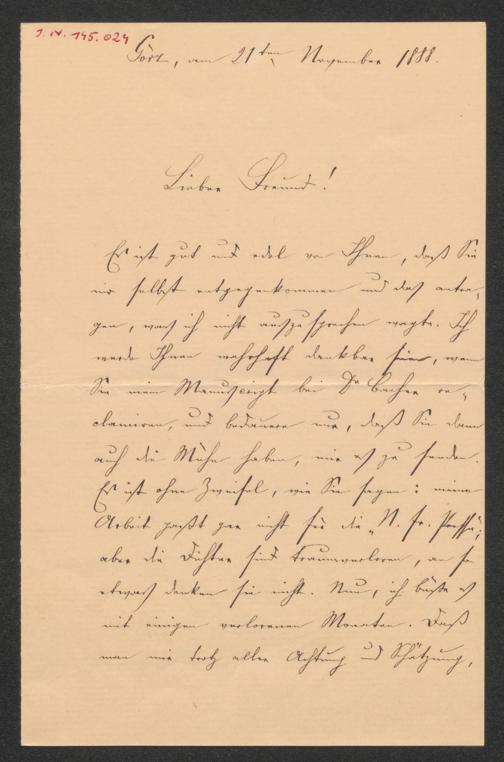 J. N. 145.024
Görz, am 21ten November 1888.
Lieber Freund!
Es ist gut und edel von Ihnen, daß Sie
mir selbst entgegenkommen und das antra-
gen, was ich nicht auszusprechen wagte. Ich
werde Ihnen wahrhaft dankbar sein, wenn
Sie mein Manuscript bei Dr Bacher re-
clamiren, und bedauere nur, daß Sie dann
auch die Mühe haben, mir es zu senden.
Es ist ohne Zweifel, wie Sie sagen: meine
Arbeit paßt gar nicht für die „N. fr. Presse",
aber die Dichter sind traumverloren, an so
etwas denken sie nicht. Nun, ich büßte es
mit einigen verlorenen Monaten. Daß
man mir trotz aller Achtung und Schätzung,